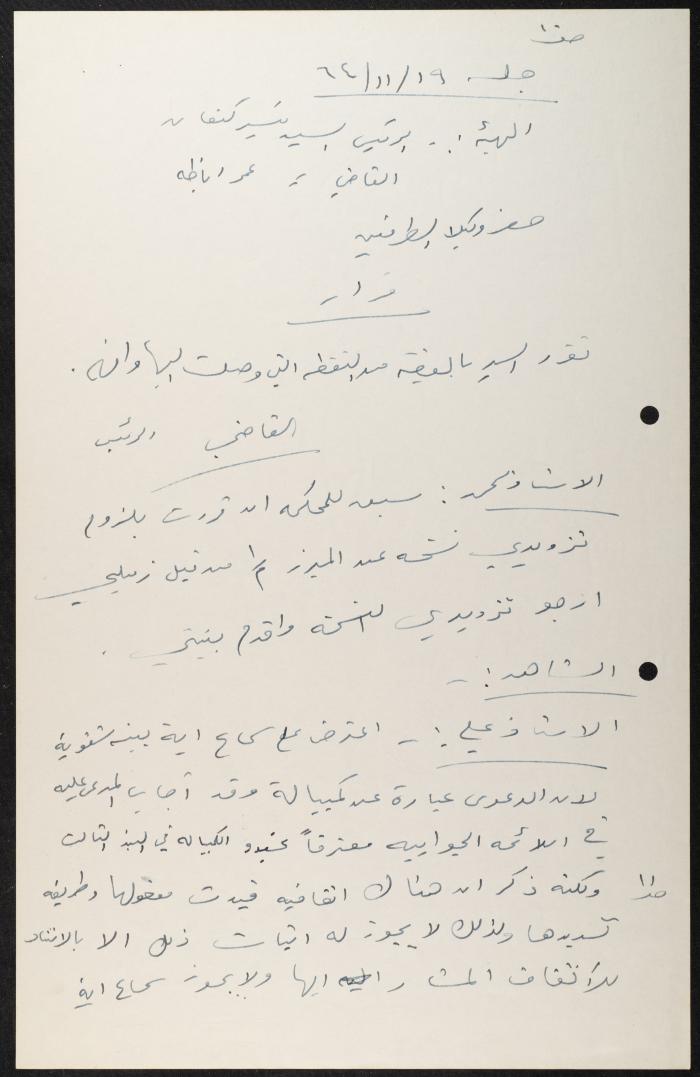 جلسة ١٩/١١/٦٤
الهيئة :. الرئيس السيد تيسير كنعان
القاضي = عمر اباظه
حضر وكيلا الطرفين
قرار
نقرر السير بالبقية من النقطه التي وصلت اليها وافهم .
القاضي الرئيس
الاستاذ محمد : سبق للمحكمه ان قررت بلزوم
تزويدي نسخه عن المبرز م/١ من قبل زميلي
ارجو تزويدي النسخة واقدم بينتي .
الشاهد : -
الاستاذ علي : - اعترض على سماع اية بينه شفوية
لان الدعوى عبارة عن كمبيالة وقد أجاب المدعى عليه
في اللائحه الجوابيه معترفاً بهذه الكمبياله في البند الثالث
ولكنه ذكر ان هناك اتفاقيه قيدت مفعولها وطريقه
تسديدها ولذلك لا يجوز له اثبات ذلك الا بالاستناد
للأتفاق المشار اليها ولا يجوز سماع اية